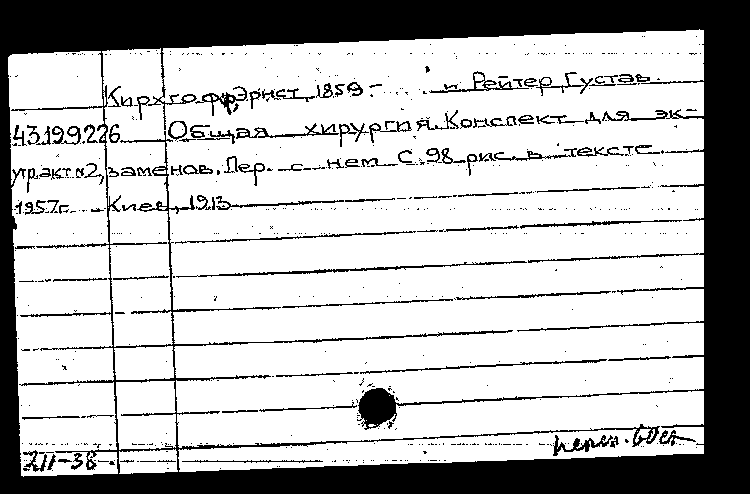 Кирхгофф, Эрнст, 1859- и Рейтер, Густав.
43.19.9.226 Общая хирургия. Конспект для эк-
утр. акт №2, заменов. Пер. с нем С. 98 рис. в тексте
1957г. Киев, 1913
211-38.